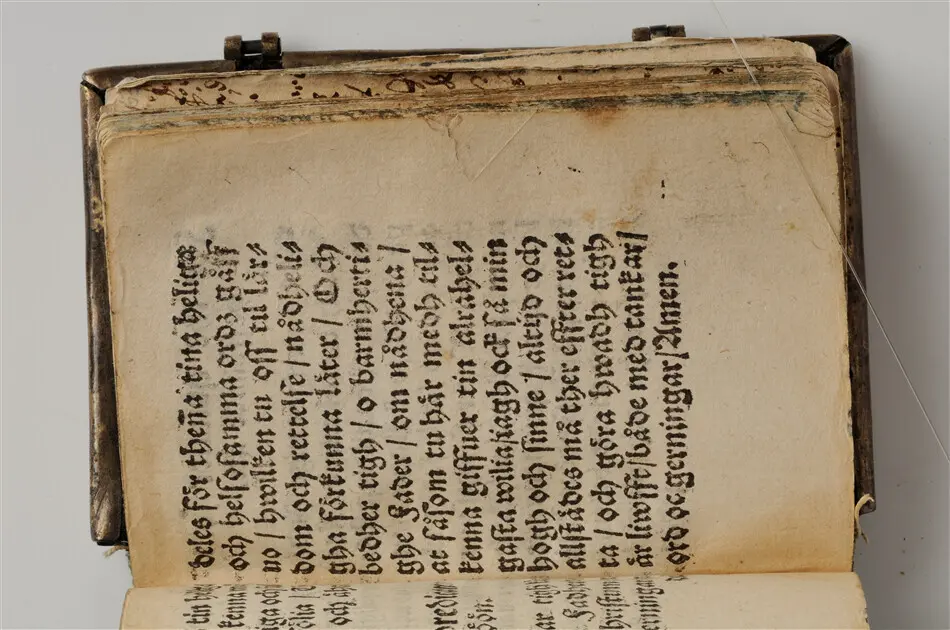 deles för theña tina heliga
och helsosamma ordz gåff
wo / hwilken tu oss til lår⸗
dom och rettelse / nådheli⸗
gha förkunna låter / Och
bedher tigh / o barmherti⸗
ghe Fader / om nådhena /
at såsom tu hår medh til⸗
kenna giffuer tin alrahel⸗
gasta wilia / iagh ock så min
hogh och sinne / altijd och
allstådes må ther effter ret⸗
ta / och göra hwadh tigh
år liwfft / både med tankar /
ord oc gerningar / Amen.